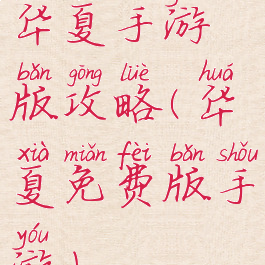 华夏手游
bǎn gōng lüè huá
版攻略(华
xià miǎn fèi bǎn shǒu
夏免费版手
yóu
游)